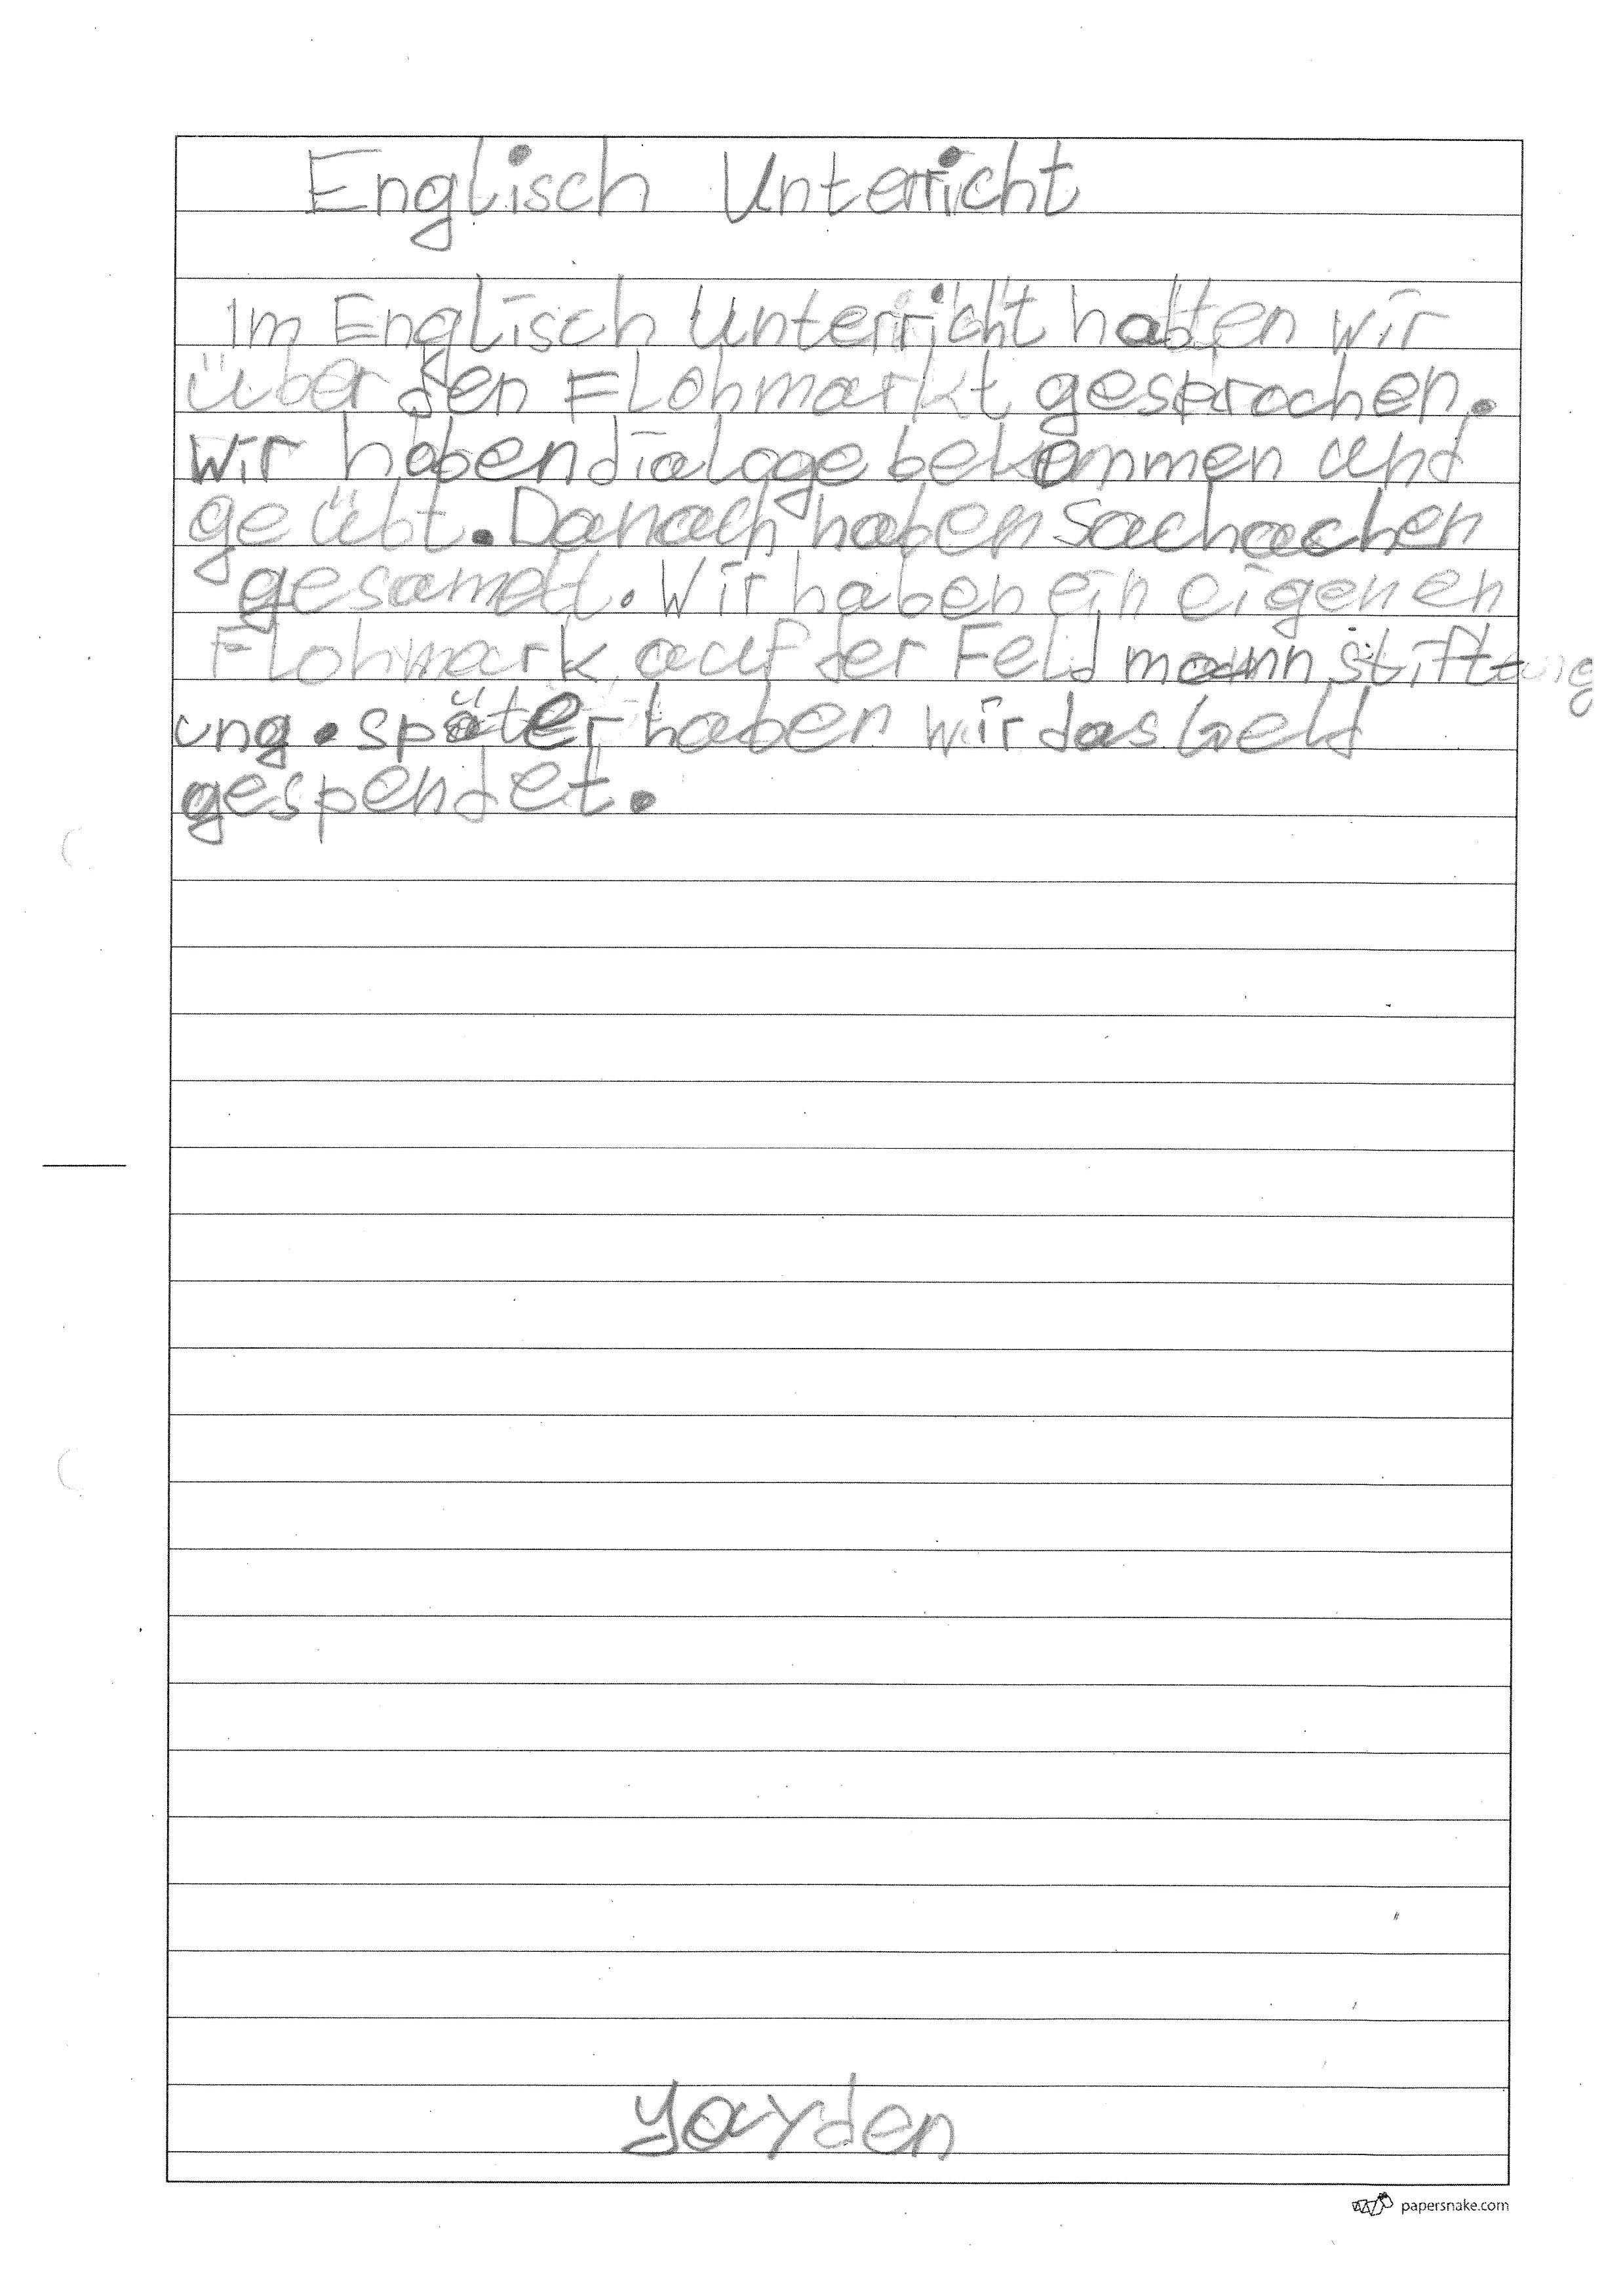 Englisch Unterricht
Im Englisch Unterricht haben wir
über den Flohmarkt gesprochen.
Wir haben dialoge bekommen und
geübt. Danach haben Sachachen
gesamelt. Wir haben ein eigenen
Flohmark auf der Feldmann stiftung
ung. später haben wir das Geld
gespendet.
yayden
papersnake.com